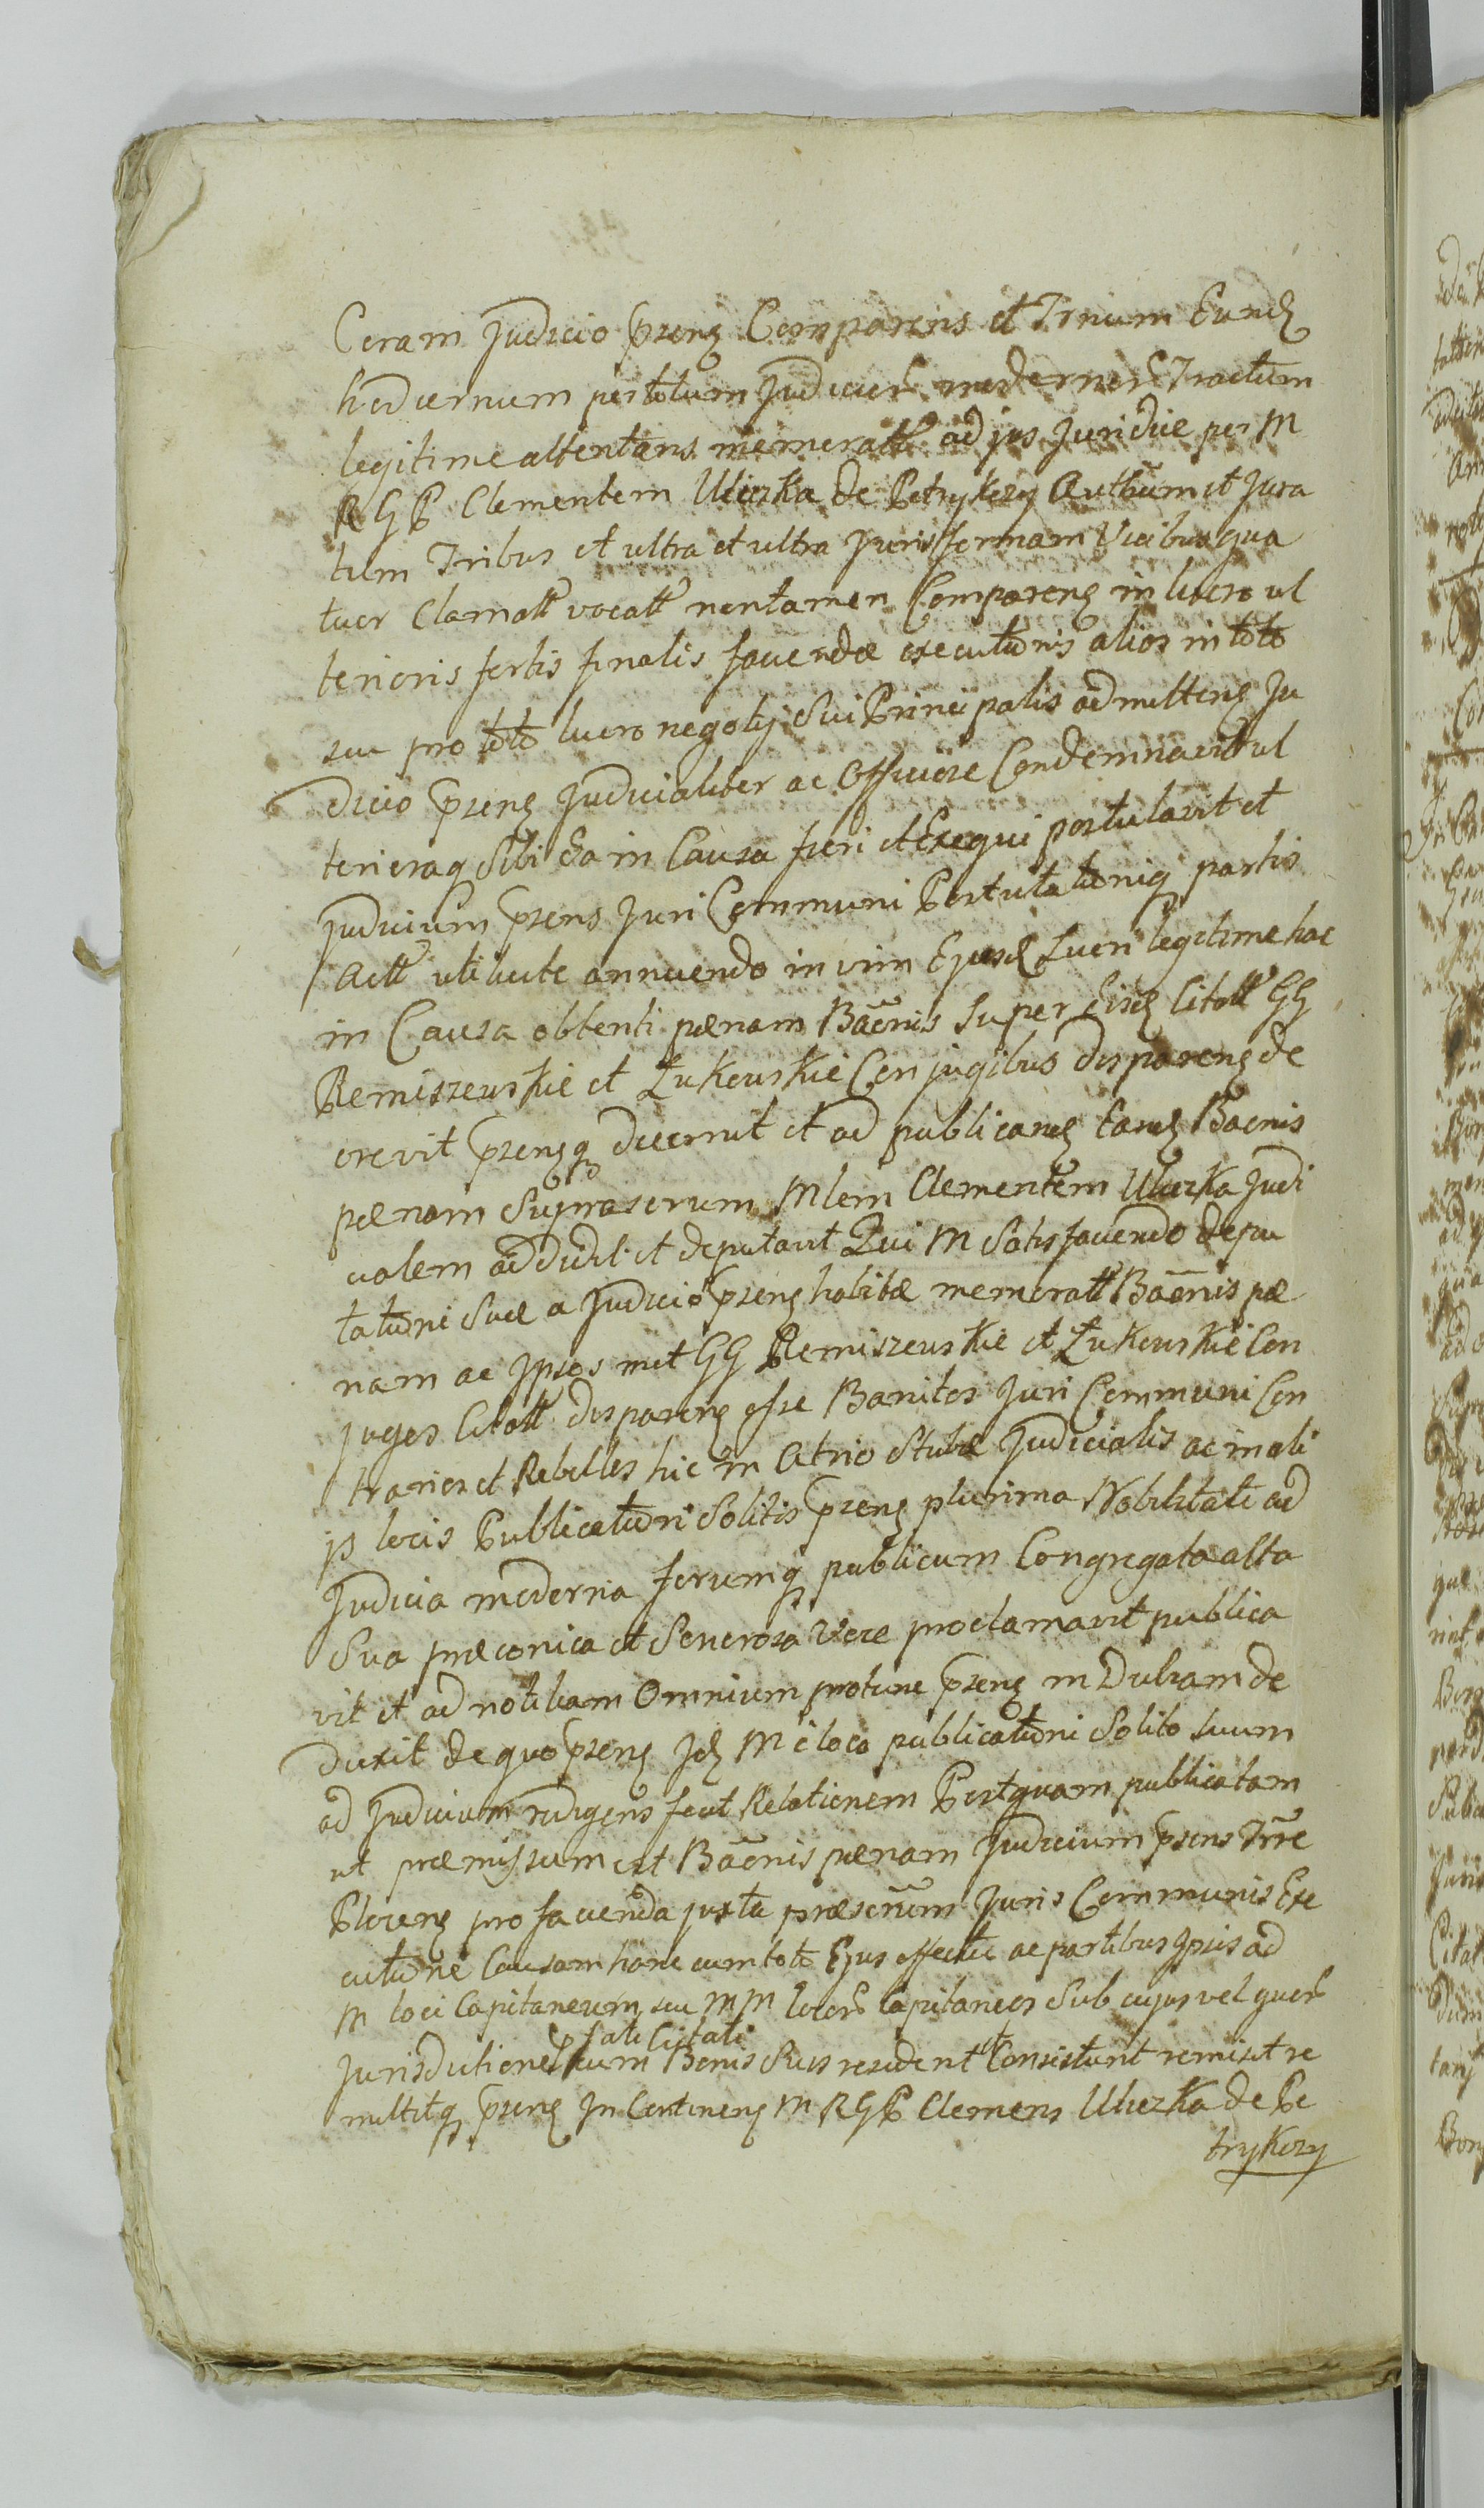 Coram Judicio pszenq Comparens et Trium Eundq
hodiernum per totum Judicior modernor Tractum
legitime attentans memoratt ad jus Juridice per M
R G P Clementem Uliczka de Petrykozy Authum et Jura
tum Tribus et ultra et ultra Juris formam Vicibusq qua
tuor Clamatt vocatt non tamen Comparenq in lucro ul
terioris fortis finalis faciendæ executionis alios in toto
seu pro toto lucro negotij Sui Principalis admittenq Ju
dicio pszenq Judicialiter ac Officiose Condemnavit ul
terioraq Sibi Ea in Causa fieri et Exequi postulavit et
Judicium pszens Juri Communi Postulationiq partis
Actt uti juste annuendo in vim Ejusdq Lucri legitime hac
in Causa obtenti pænam Baonis super Eisdq Citatt GG
Remiszewskie et Łukowskie Conjugibus disparenq de
crevit pszenqq decernit et ad publicandq Eandq Baonis
pænam Suprascrum Mlem Clementem Uliczka Judi
cialem addidit et deputavit Qui M Satisfaciendo depu
tationi Suæ a Judicio pszenq habitæ memoratt Baonis pæ
nam ac Ipsos met GG Remiszewskie et Łukowskie Con
juges Citatt disparenq esse Banitos Juri Communi Con
trarios et Rebelles hic in Atrio Stubæ Judicialis ac in ali
js locis Publicationi Solitis pszenq plurima Nobilitate ad
Judicia moderna forumq publicum Congregata alta
Sua præconica et Sonorosa Voce proclamavit publica
vit et ad notitiam Omnium protunc pszenq in Dubiam de
duxit de quo pszenq Jdq M e loco publicationi Solito suum
ad Judicium redigens fecit Relationem Postquam publicatam
ut præmissum est Baonis pænam Judicium pszens Trre
Plocenq pro facienda juxta præscrum Juris Communis Exe
cutione Causam hanc cum toto Ejus effectu ac partibus Ipsis ad
M loci Capitaneum seu MM locor Capitaneos Sub cujus vel quor
Jurisdictione pfati Citati cum Bonis Suis resident et Consistunt remisit re
mittitq pszenq In Continenq M R G P Clemens Uliczka de Pe
trykozy